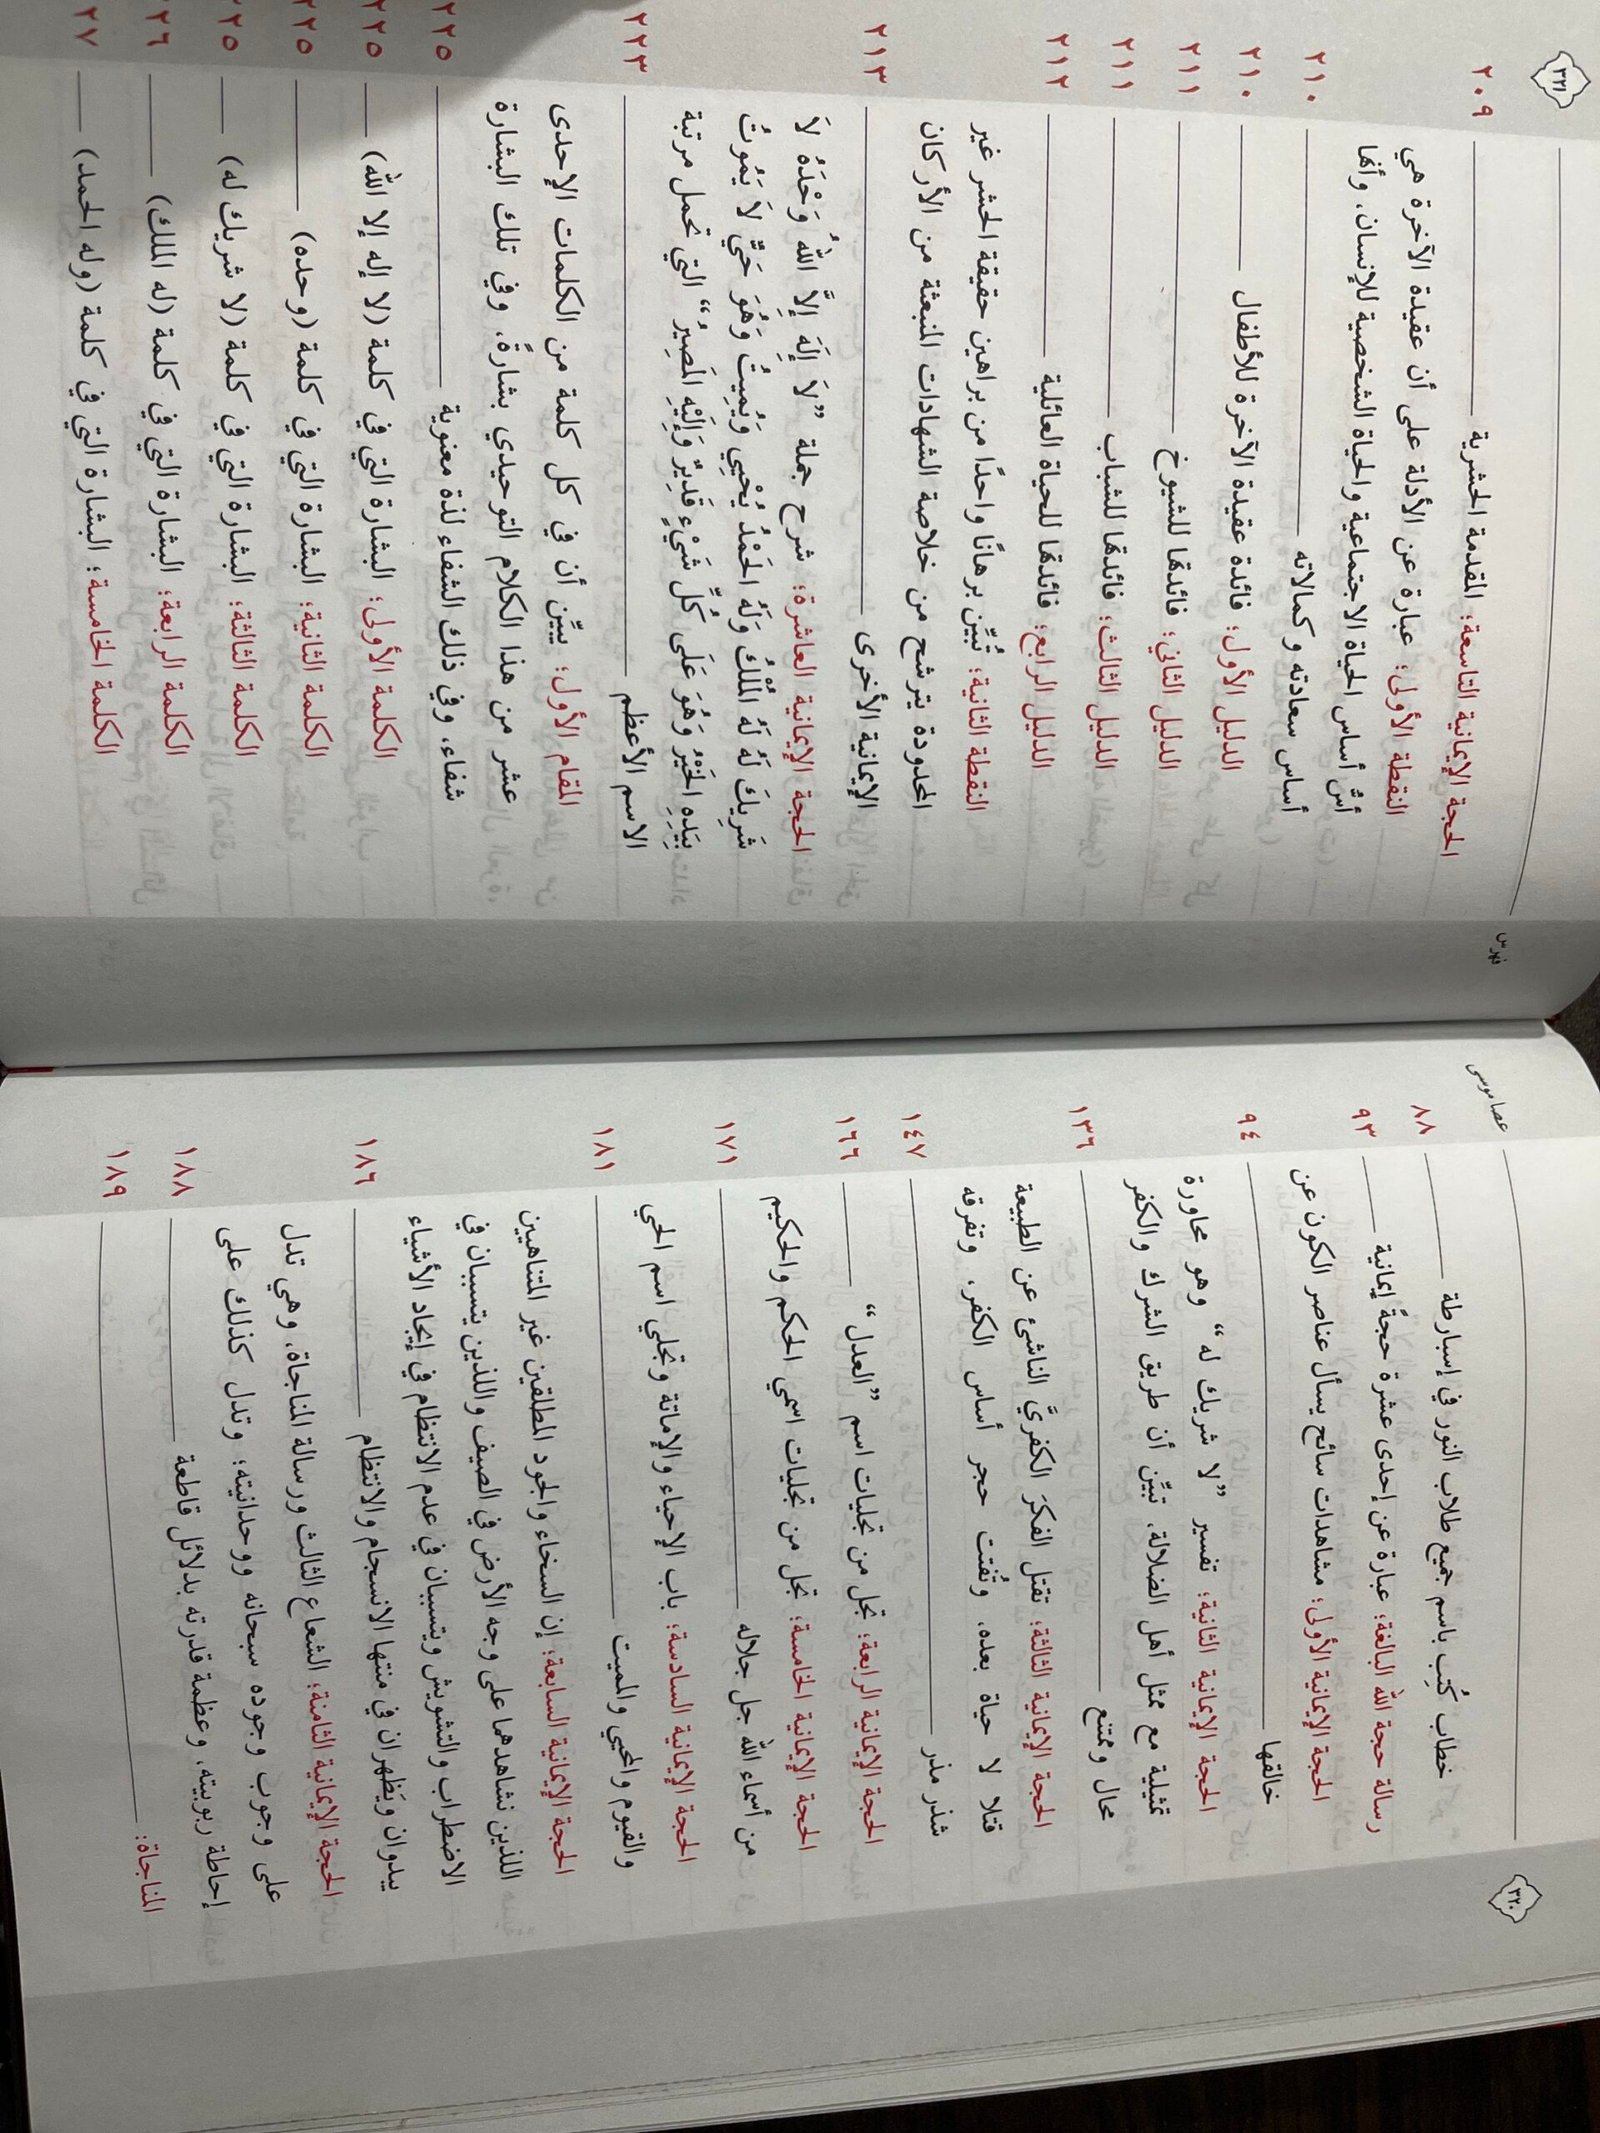 ٣٢٠
عصا موسى
خطاب كُتِب باسم جميع طلاب النور في إسبارطة ٨٨
رسالة حجة الله البالغة: عبارة عن إحدى عشرة حجةً إيمانية ٩٣
الحجة الإيمانية الأولى: مشاهدات سائح يسأل عناصر الكون عن
خالقها ٩٤
الحجة الإيمانية الثانية: تفسير ”لا شريك له“ وهو محاورة
تمثيلية مع ممثل أهل الضلالة، تبيّن أن طريق الشرك والكفر
محال وممتنع ١٣٦
الحجة الإيمانية الثالثة: تقتل الفكرَ الكفريَّ الناشئ عن الطبيعة
قتلا لا حياة بعده، وتُفتت حجر أساس الكفر، وتفرقه
شذر مذر ١٤٧
الحجة الإيمانية الرابعة: تجل من تجليات اسم ”العدل“ ١٦٦
الحجة الإيمانية الخامسة: تجل من تجليات اسمي الحكم والحكيم
من أسماء الله جل جلاله ١٧١
الحجة الإيمانية السادسة: باب الإحياء والإماتة وتجلي اسم الحي
والقيوم والمحيي والمميت ١٨١
الحجة الإيمانية السابعة: إن السخاء والجود المطلقين غير المتناهيين
اللذين نشاهدهما على وجه الأرض في الصيف واللذين يتسببان في
الاضطراب والتشويش ويتسببان في عدم الانتظام في إيجاد الأشياء
يبدوان ويَظهران في منتها الانسجام والانتظام ١٨٦
الحجة الإيمانية الثامنة: الشعاع الثالث ورسالة المناجاة، وهي تدل
على وجوب وجوده سبحانه ووحدانيته؛ وتدل كذلك على
إحاطة ربوبيته، وعظمة قدرته بدلائل قاطعة ١٨٨
المناجاة: ١٨٩
فهرس
٣٢١
الحجة الإيمانية التاسعة: المقدمة الحشرية ٢٠٩
النقطة الأولى: عبارة عن الأدلة على أن عقيدة الآخرة هي
أسُّ أساس الحياة الاجتماعية والحياة الشخصية للإنسان، وأنها
أساس سعادته وكمالاته ٢١٠
الدليل الأول: فائدة عقيدة الآخرة للأطفال ٢١٠
الدليل الثاني: فائدتها للشيوخ ٢١١
الدليل الثالث: فائدتها للشباب ٢١١
الدليل الرابع: فائدتها للحياة العائلية ٢١٢
النقطة الثانية: تُبيِّن برهانًا واحدًا من براهين حقيقة الحشر غير
المحدودة يترشح من خلاصة الشهادات المنبعثة من الأركان
الإيمانية الأخرى ٢١٣
الحجة الإيمانية العاشرة: شرح جملة ”لَا إِلَهَ إِلَّا اللهُ وَحْدَهُ لَا
شَرِيكَ لَهُ لَهُ الْمُلْكُ وَلَهُ الْحَمْدُ يُحْيِي وَيُمِيتُ وَهُوَ حَيٌّ لَا يَمُوتُ
بِيَدِهِ الْخَيْرُ وَهُوَ عَلَى كُلِّ شَيْءٍ قَدِيرٌ وَإِلَيْهِ الْمَصِيرُ“ التي تحمل مرتبة
الاسم الأعظم ٢٢٣
المقام الأول: يبيِّن أن في كل كلمة من الكلمات الإحدى
عشر من هذا الكلام التوحيدي بشارةً، وفي تلك البشارة
شفاء، وفي ذلك الشفاء لذة معنوية ٢٢٥
الكلمة الأولى: البشارة التي في كلمة (لا إله إلا الله) ٢٢٥
الكلمة الثانية: البشارة التي في كلمة (وحده) ٢٢٥
الكلمة الثالثة: البشارة التي في كلمة (لا شريك له) ٢٢٥
الكلمة الرابعة: البشارة التي في كلمة (له الملك) ٢٢٦
الكلمة الخامسة: البشارة التي في كلمة (وله الحمد) ٢٢٧